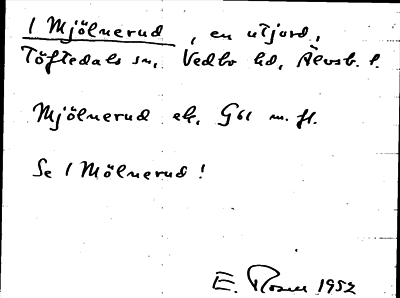 1 Mjölnerud, en utjord,
Töftedals sn, Vedbo hd, Älvsb. l.
Mjölnerud ek. G61 m. fl.
Se 1 Mölnerud!
E. Rosell 1952